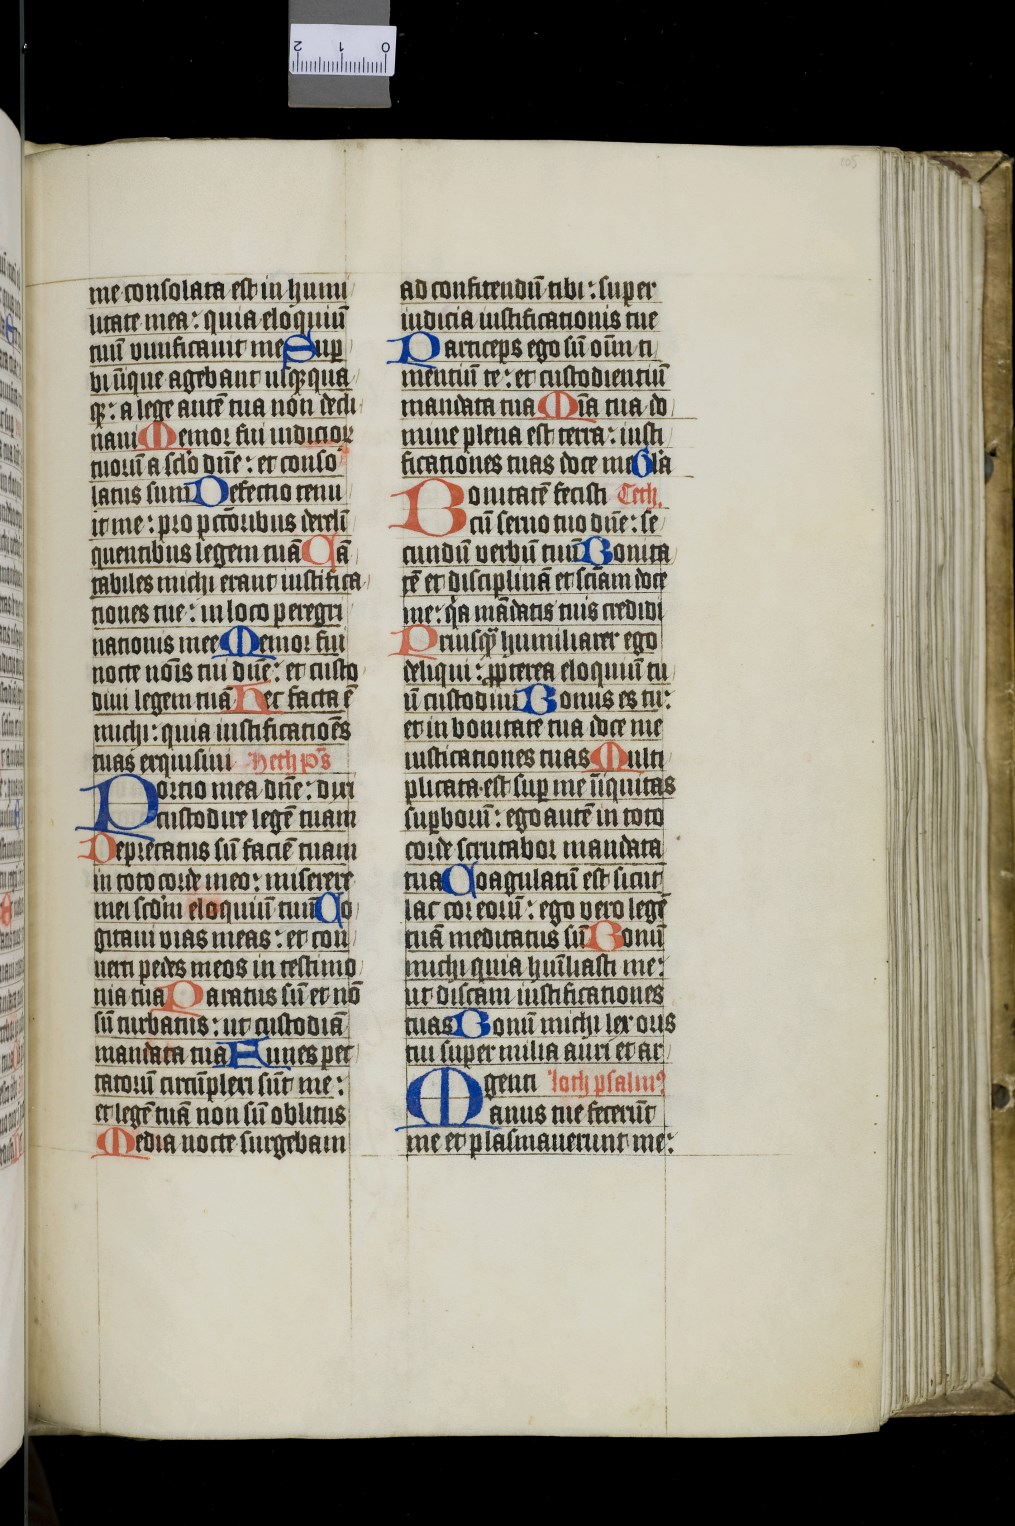 me consolata est in humi
litate mea: quia eloquiū
tuū viuificauit me Sup
bi īique agebant usq; qua
q;: a lege autē tua non decli
naui Memor fui iudicior
tuorū a sclō dn̄e: et conso
latus sum Defectio tenu
it me: pro pctōribus derelī
quentibus legem tuā Cā
tabiles michi erant iustifica
tiones tue: in loco peregri
nationis mee Memor fui
nocte noīs tui dn̄e: et custo
diui legem tuā Hec facta ē
michi: quia iustificatiōes
tuas exquisiui Heth ps̄
Portio mea dn̄e: dixi
custodire legē tuam
Deprecatus sū faciē tuam
in toto corde meo: miserere
mei scdm eloquiū tuū Co
gitaui vias meas: et con
uerti pedes meos in testimo
nia tua Paratus sū et nō
sū turbatus: ut custodiā
mandata tua Funes pec
catorū circūplexi sūt me:
et legē tuā non sū oblitus
Media nocte surgebam
ad confitendū tibi: super
iudicia iustificationis tue
Particeps ego sū oīm ti
mentiū te: et custodientiū
mandata tua Mīa tua do
mine plena est terra: iusti
ficationes tuas doce me Glā
Bonitatē fecisti Teth.
cū seruo tuo dn̄e: se
cundū verbū tuū Bonita
tē et disciplinā et sciām doce
me: qa mādatis tuis credidi
Priusq humiliarer ego
deliqui: ppterea eloquiū tu
ū custodiui Bonus es tu:
et in bonitate tua doce me
iustificationes tuas Multi
plicata est sup me īiquitas
supborū: ego autē in toto
corde scrutabor mandata
tua Coagulatū est sicut
lac cor eorū: ego vero legē
tuā meditatus sū Bonū
michi quia hūiliasti me:
ut discam iustificationes
tuas Bonū michi lex oris
tui super milia auri et ar
genti Ioth psalm9
Manus tue fecerūt
me et plasmauerunt me:
105
2 1 0